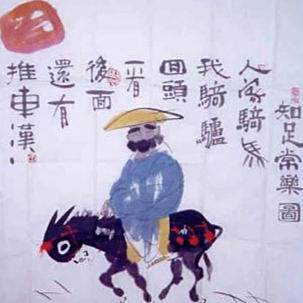 知足常樂圖
人家騎馬
我騎驢
回頭
一看
後面
還有
推車漢